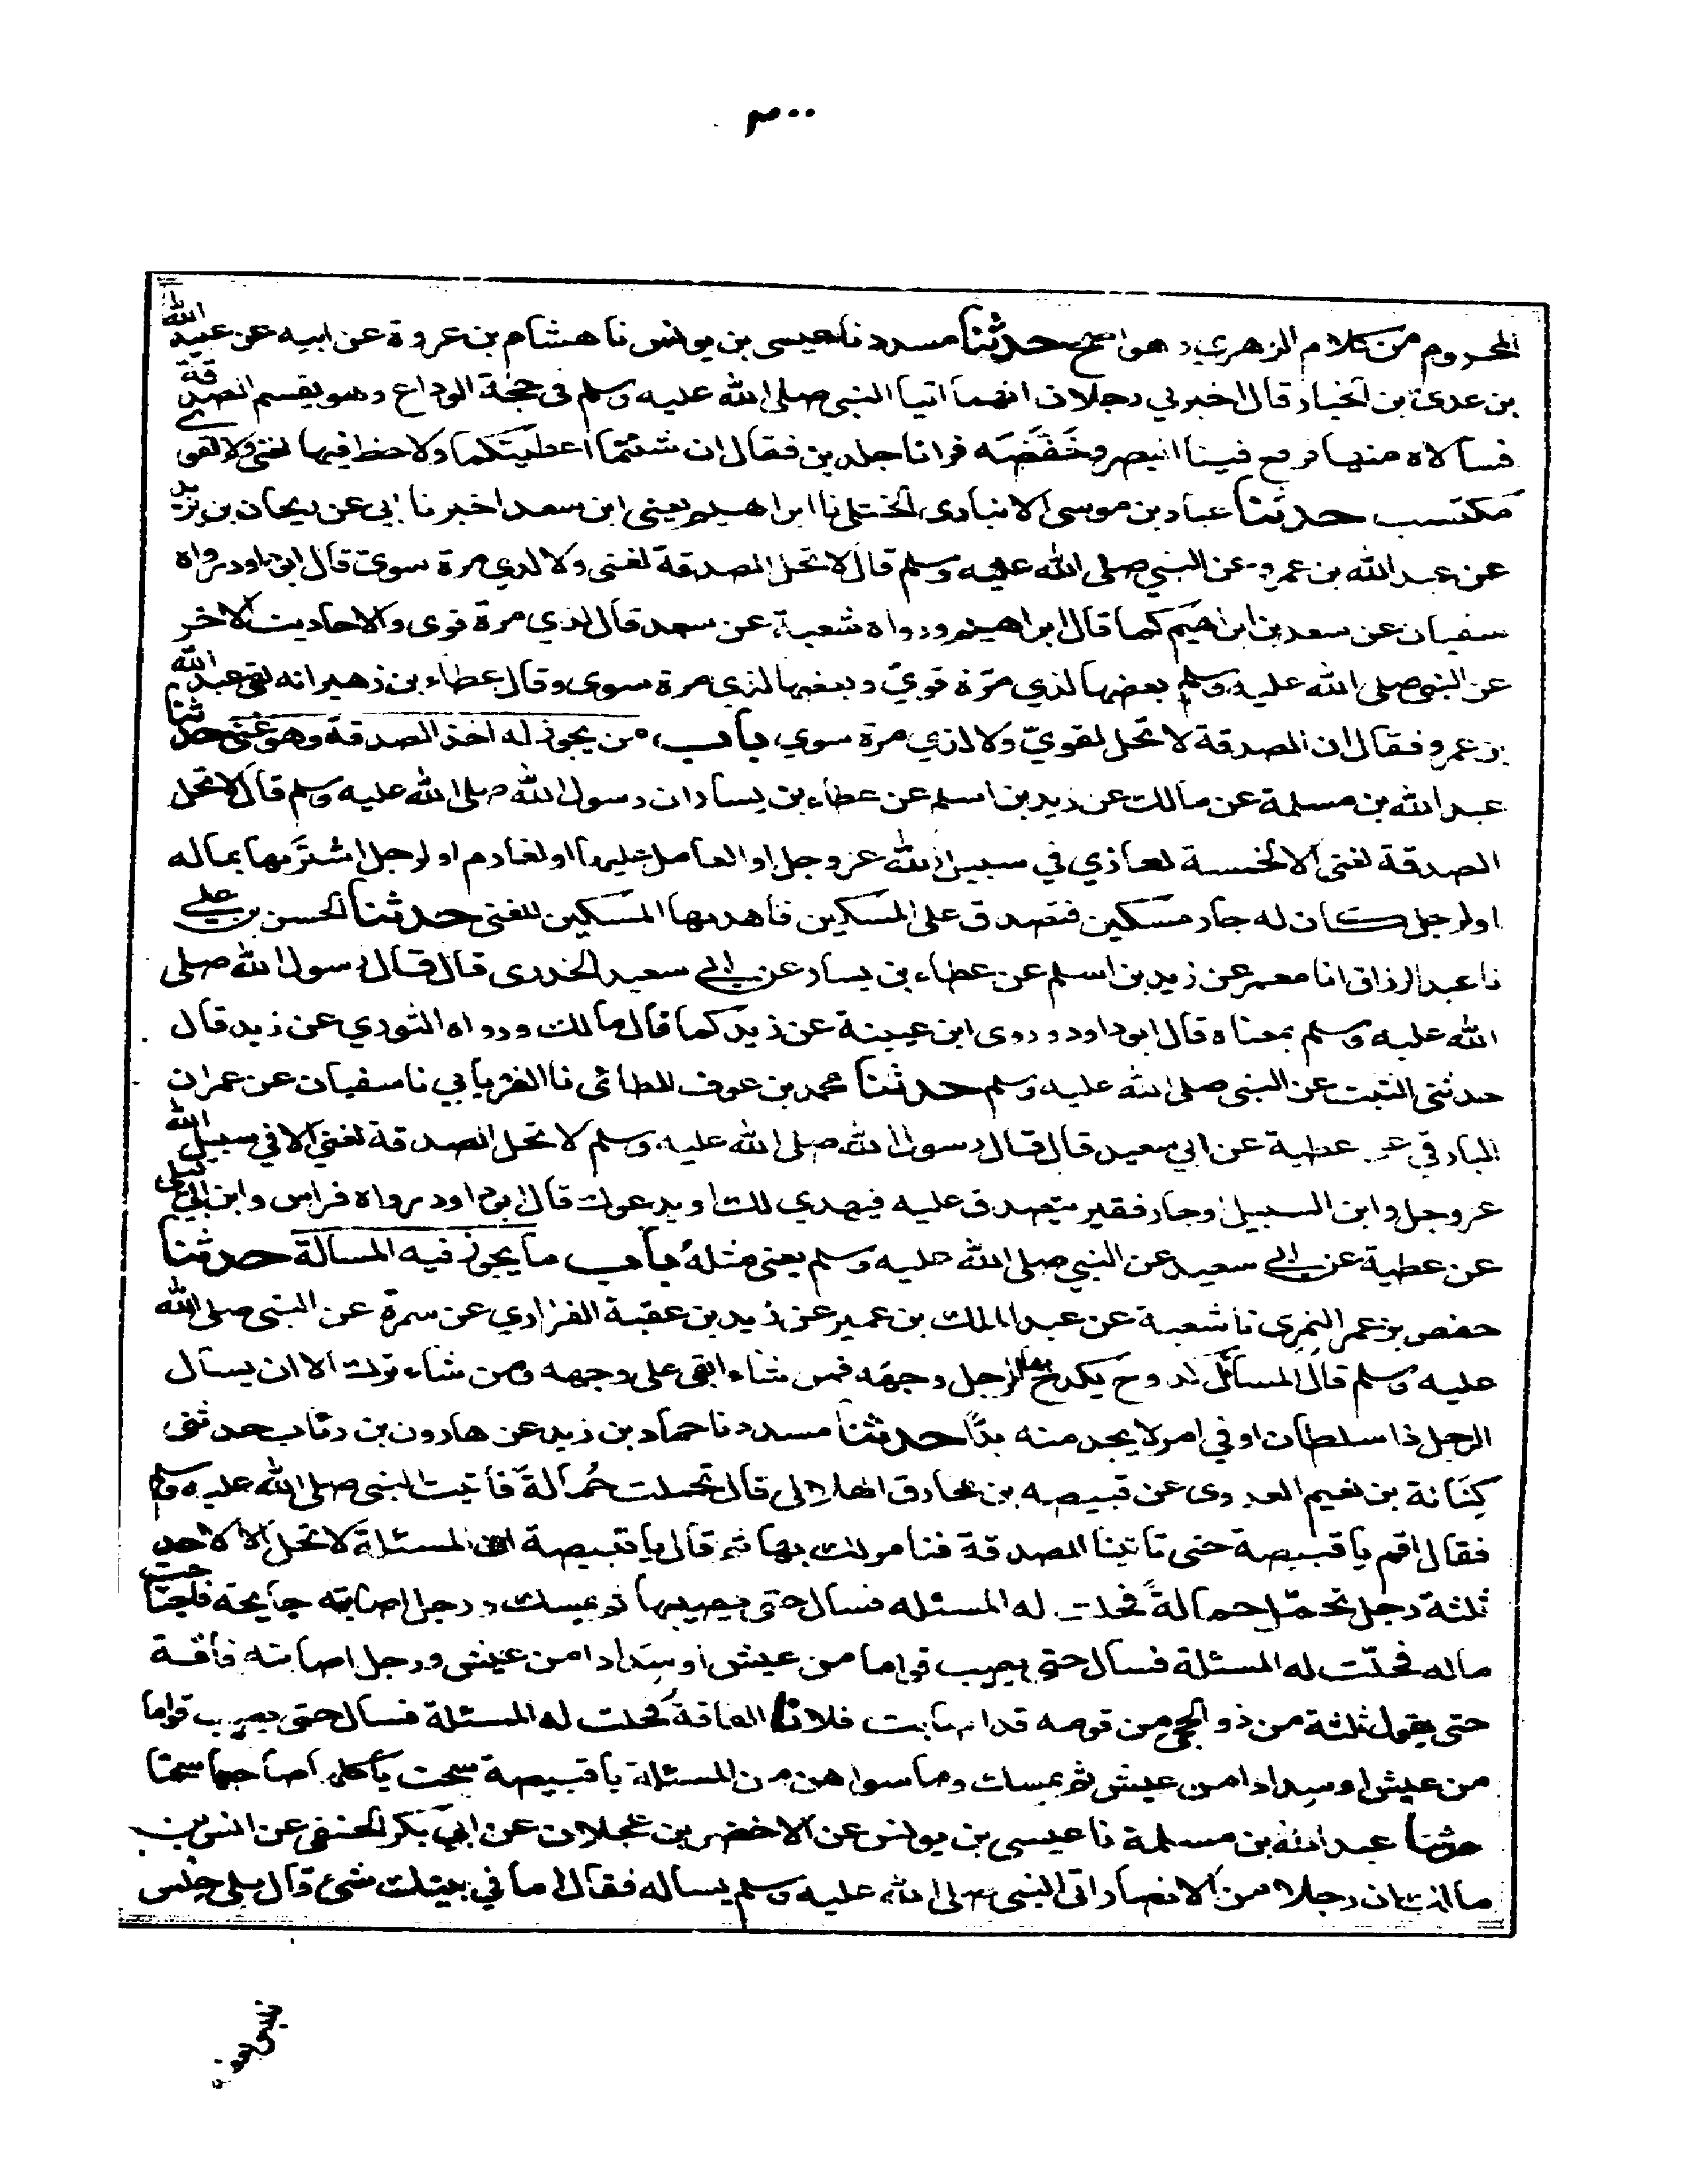 ٣٠٠
المحروم من كلام الزهري وهو اصح حدثنا مسدد نا عيسى بن يونس نا هشام بن عروة عن ابيه عن عبيد الله
بن عدي بن الخيار قال اخبرني رجلان انهما اتيا النبي صلى الله عليه وسلم في حجة الوداع وهو يقسم الصدقة
فسألاه منها فرفع فينا البصر وخفضه فرانا جلدين فقال ان شئتما اعطيتكما ولا حظ فيها لغني ولا لقوي
مكتسب حدثنا عباد بن موسى الانباري الختلي نا ابراهيم يعني ابن سعد اخبرنا ابي عن ريحان بن يزيد
عن عبد الله بن عمرو عن النبي صلى الله عليه وسلم قال لا تحل الصدقة لغني ولا لذي مرة سوي قال ابو داود رواه
سفيان عن سعد بن ابراهيم كما قال ابراهيم ورواه شعبة عن سعد قال لذي مرة قوي والاحاديث الاخر
عن النبي صلى الله عليه وسلم بعضها لذي مرة قوي وبعضها لذي مرة سوي وقال عطاء بن زهير انه لقي عبد الله
بن عمرو فقال ان الصدقة لا تحل لقوي ولا لذي مرة سوي باب من يجوز له اخذ الصدقة وهو غني حدثنا
عبد الله بن مسلمة عن مالك عن زيد بن اسلم عن عطاء بن يسار ان رسول الله صلى الله عليه وسلم قال لا تحل
الصدقة لغني الا لخمسة لغازي في سبيل الله عز وجل او العامل عليها او لغارم او لرجل اشترىها بماله
او لرجل كان له جار مسكين فتصدق على المسكين فاهديها المسكين للغني حدثنا الحسن بن علي
نا عبد الرزاق انا معمر عن زيد بن اسلم عن عطاء بن يسار عن ابي سعيد الخدري قال قال رسول الله صلى
الله عليه وسلم بمعناه قال ابو داود وروى ابن عيينة عن زيد كما قال مالك ورواه الثوري عن زيد قال
حدثني الثبت عن النبي صلى الله عليه وسلم حدثنا محمد بن عوف الطائي نا الفريابي نا سفيان عن عمران
البارقي عن عطية عن ابي سعيد قال قال رسول الله صلى الله عليه وسلم لا تحل الصدقة لغني الا في سبيل الله
عز وجل وابن السبيل او جار فقير يتصدق عليه فيهدي لك او يدعوك قال ابو داود رواه فراس وابن ابي ليلى
عن عطية عن ابي سعيد عن النبي صلى الله عليه وسلم يعني مثله باب ما يجوز فيه المسألة حدثنا
حفص بن عمر النمري نا شعبة عن عبد الملك بن عمير عن زيد بن عقبة الفزاري عن سمرة عن النبي صلى الله
عليه وسلم قال المسائل كدوح يكدح بها الرجل وجهه فمن شاء ابقى على وجهه ومن شاء ترك الا ان يسأل
الرجل ذا سلطان او في امر لا يجد منه بدا حدثنا مسدد نا حماد بن زيد عن هارون بن رئاب حدثني
كنانة بن نعيم العدوي عن قبيصه بن مخارق الهلالي قال تحملت حمالة فأتيت النبي صلى الله عليه وسلم
فقال اقم يا قبيصة حتى تاتينا الصدقة فنامر لك بها ثم قال يا قبيصة ان المسئلة لا تحل الا لاحد
ثلثة رجل تحمل حمالة فحلت له المسئله فسال حتى يصيبها ثم يمسك ورجل اصابته جايحة فاجتاحت
ماله فحلت له المسئلة فسال حتى يصيب قواما من عيش او سدادا من عيش ورجل اصابته فاقة
حتى يقول ثلثة من ذوي الحجى من قومه قد اصابت فلانا الفاقة فحلت له المسئلة فسال حتى يصيب قواما
من عيش او سدادا من عيش ثم يمسك وما سواهن من المسئلة يا قبيصة سحت يأكلها صاحبها سحتا
حدثنا عبد الله بن مسلمة نا عيسى بن يونس عن الاخضر بن عجلان عن ابي بكر الحنفي عن انس بن
مالك ان رجلا من الانصار اتى النبي صلى الله عليه وسلم يساله فقال اما في بيتك شئ قال بلى حلس